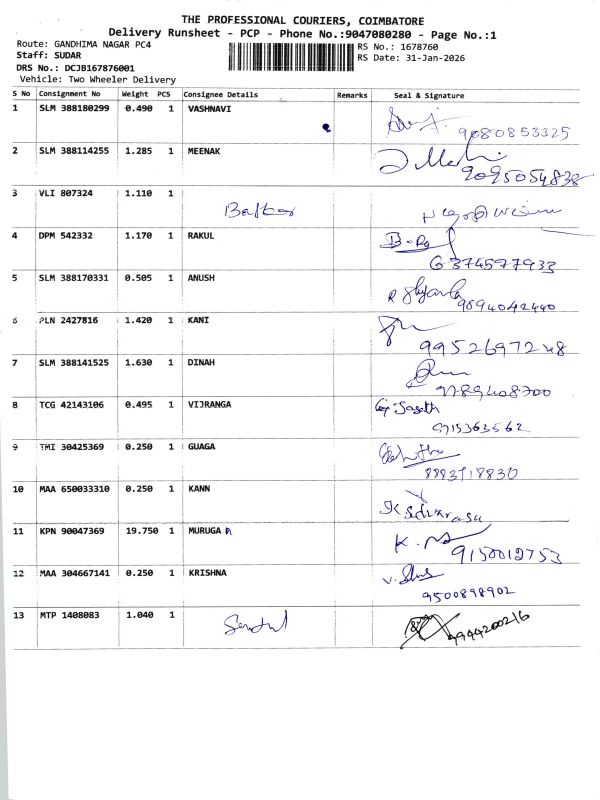 THE PROFESSIONAL COURIERS, COIMBATORE
Delivery Runsheet - PCP - Phone No.:9047080280 - Page No.:1
Route: GANDHIMA NAGAR PC4
RS No.: 1678760
Staff: SUDAR
RS Date: 31-Jan-2026
DRS No.: DCJB167876001
Vehicle: Two Wheeler Delivery
S No Consignment No Weight PCS Consignee Details Remarks Seal & Signature
1 SLM 388180299 0.490 1 VASHNAVI
9080853325
2 SLM 388114255 1.285 1 MEENAK
9095054838
3 VLI 807324 1.110 1
4 DPM 542332 1.170 1 RAKUL
6374577933
5 SLM 388170331 0.505 1 ANUSH
9894042440
6 PLN 2427816 1.420 1 KANI
9952697248
7 SLM 388141525 1.630 1 DINAH
9789408700
8 TCG 42143106 0.495 1 VIJRANGA
9715363562
9 TMI 30425369 0.250 1 GUAGA
8883718830
10 MAA 650033310 0.250 1 KANN
11 KPN 90047369 19.750 1 MURUGA n
9150012753
12 MAA 304667141 0.250 1 KRISHNA
9500898902
13 MTP 1408083 1.040 1
9944200216